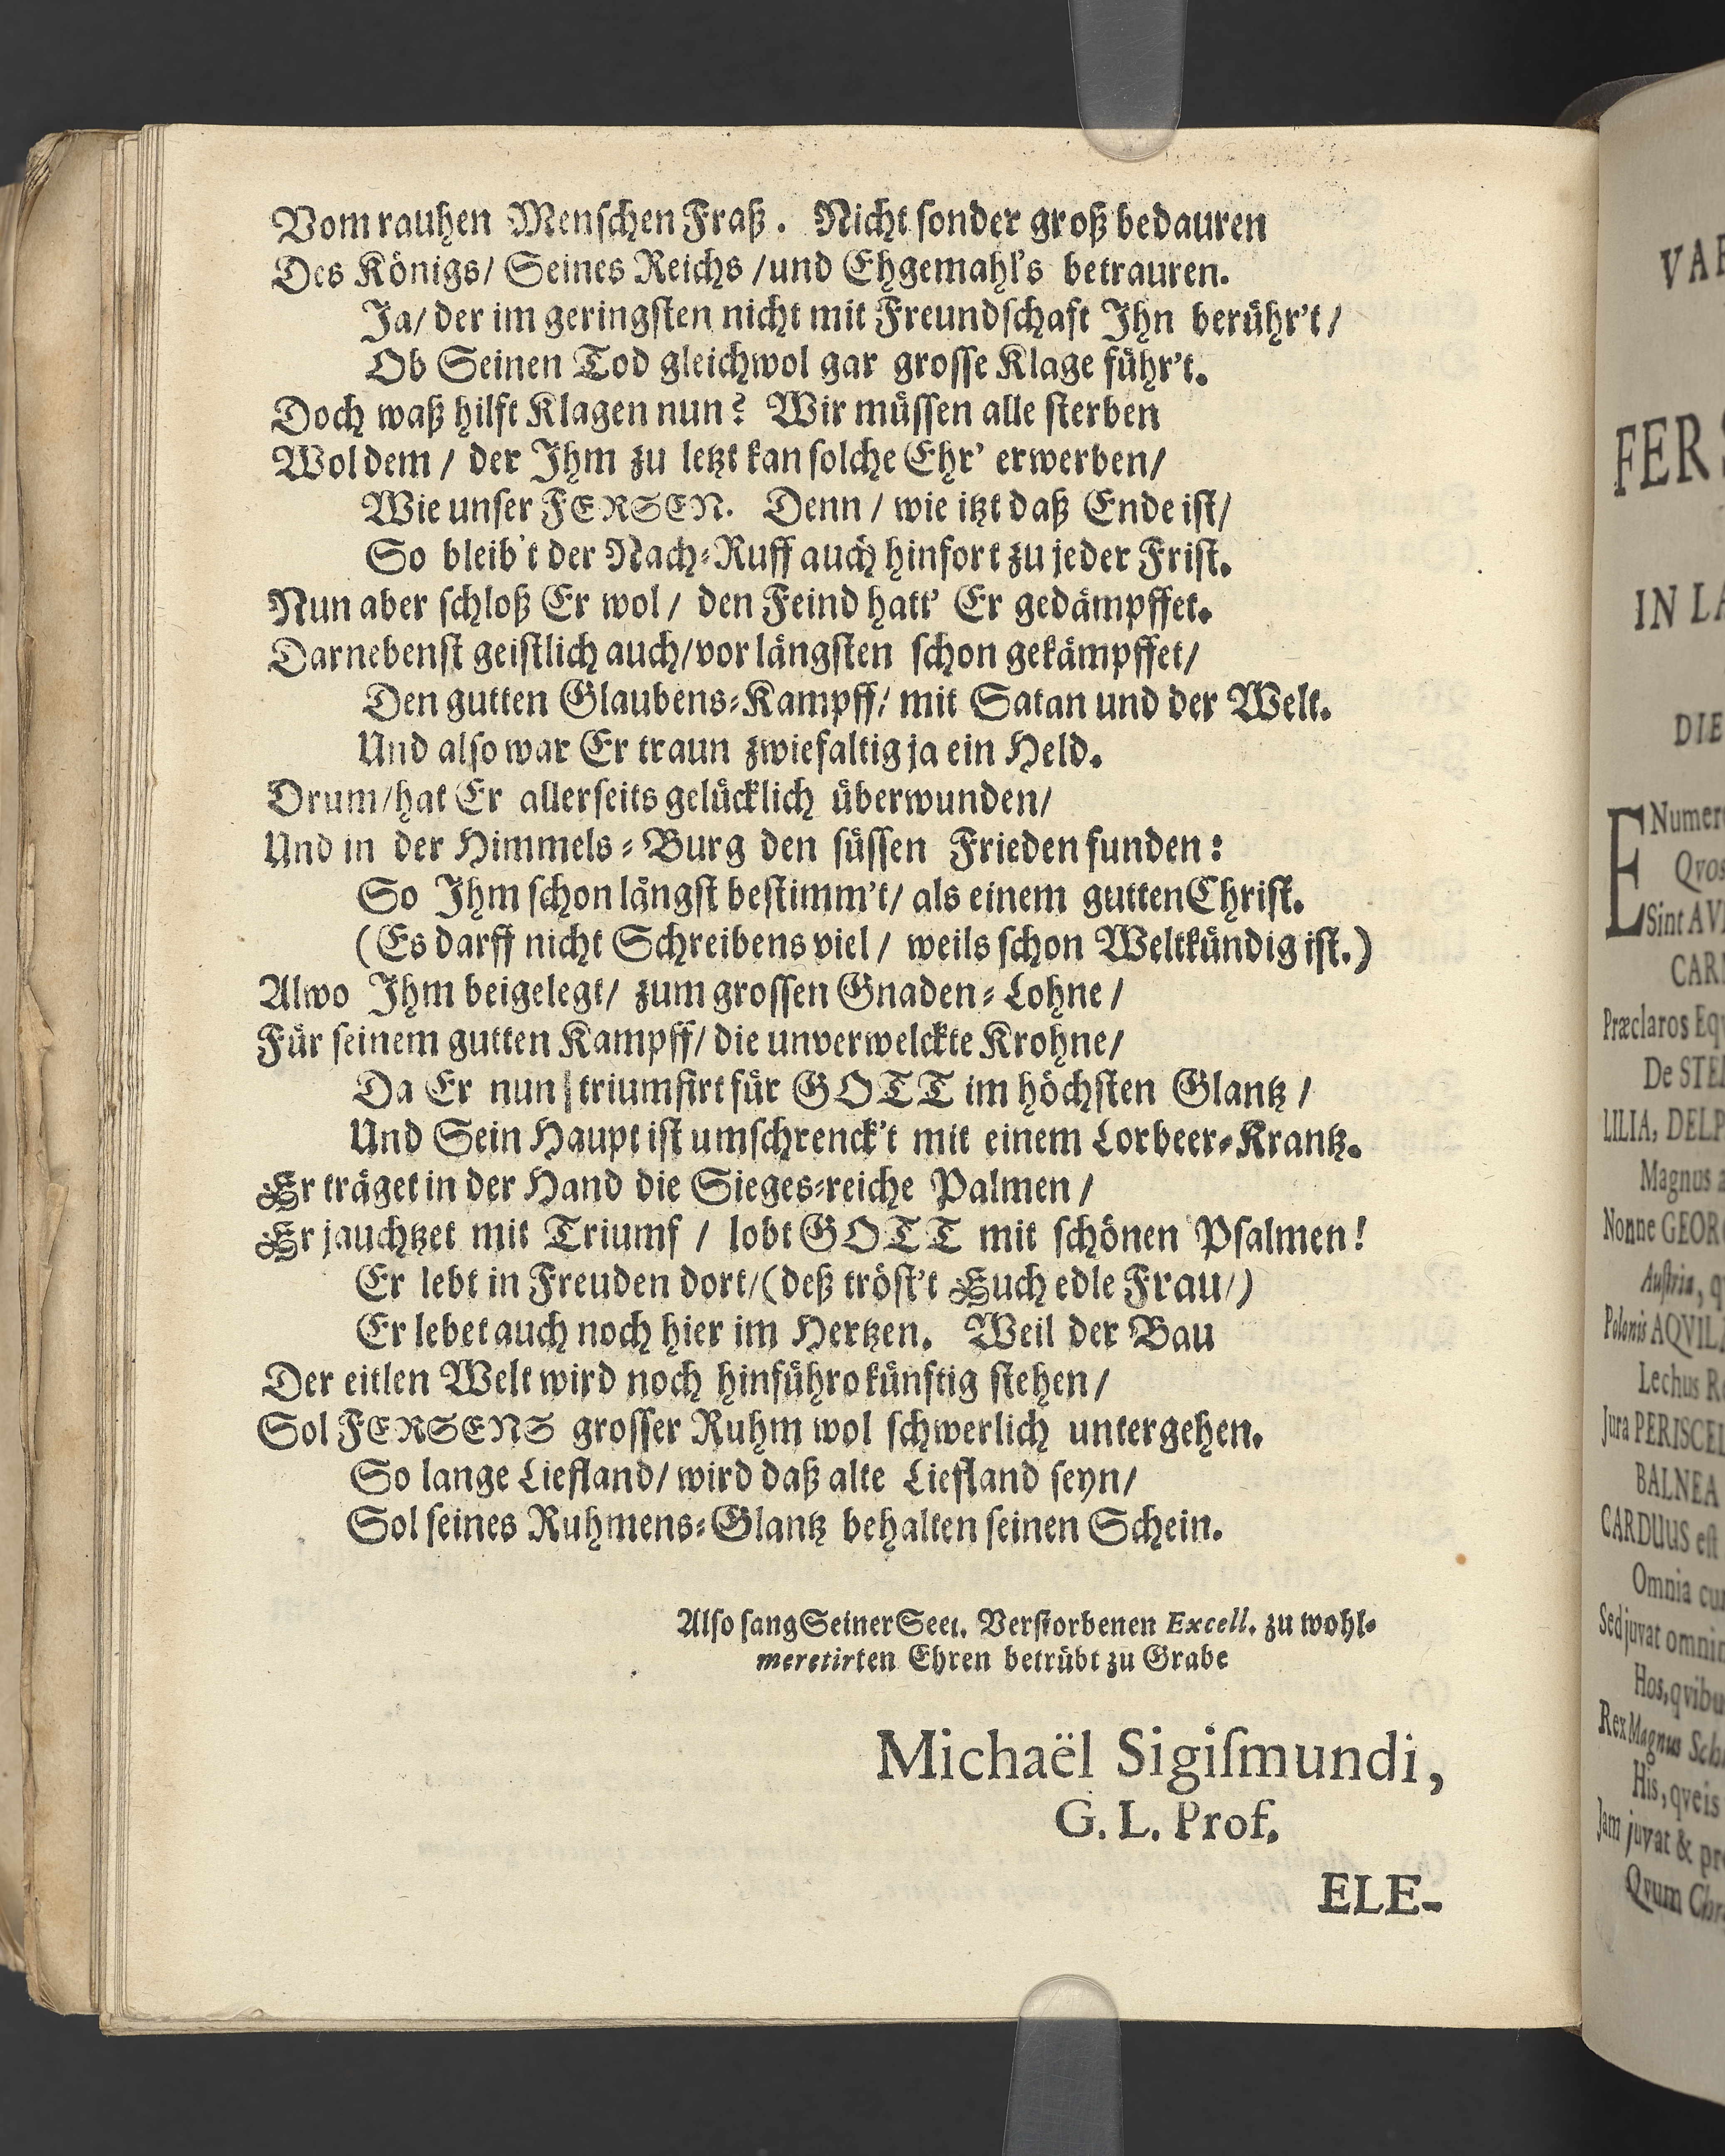 Vom rauhen Menſchen Fraß. Nicht ſonder groß bedauren
Des Königs/ Seines Reichs /und Ehgemahl's betrauren.
Ja/ der im geringſten nicht mit Freundſchaft Ihn berühr't/
Ob Seinen Tod gleichwol gar groſſe Klage führ't.
Doch waß hilft Klagen nun? Wir müſſen alle ſterben
Wol dem / der Ihm zu letzt kan ſolche Ehr' erwerben/
Wie unſer FERSEN. Denn / wie itzt daß Ende iſt/
So bleib't der Nach-Ruff auch hinfort zu jeder Friſt.
Nun aber ſchloß Er wol / den Feind hatt' Er gedämpffet.
Darnebenſt geiſtlich auch/vor längſten ſchon gekämpffet/
Den gutten Glaubens-Kampff/ mit Satan und der Welt.
Und alſo war Er traun zwiefaltig ja ein Held.
Drum/hat Er allerſeits gelücklich überwunden/
Und in der Himmels-Burg den ſüſſen Frieden funden:
So Ihm ſchon längſt beſtimm't/ als einem gutten Chriſt.
(Es darff nicht Schreibens viel / weils ſchon Weltkündig iſt.)
Alwo Ihm beigelegt/ zum groſſen Gnaden-Lohne /
Für ſeinem gutten Kampff/ die unverwelckte Krohne/
Da Er nun triumfirt für GOTT im höchſten Glantz /
Und Sein Haupt iſt umſchrenck't mit einem Lorbeer-Krantz.
Er träget in der Hand die Sieges-reiche Palmen /
Er jauchtzet mit Triumf / lobt GOTT mit ſchönen Pſalmen!
Er lebt in Freuden dort/(deß tröſt't Euch edle Frau/)
Er lebet auch noch hier im Hertzen. Weil der Bau
Der eitlen Welt wird noch hinführo künftig ſtehen /
Sol FERSENS groſſer Ruhm wol ſchwerlich untergehen.
So lange Liefland/ wird daß alte Liefland ſeyn/
Sol ſeines Ruhmens-Glantz behalten ſeinen Schein.
Alſo ſang Seiner Seel. Verſtorbenen Excell. zu wohl-
meretirten Ehren betrübt zu Grabe
Michaël Sigiſmundi,
G. L. Prof.
ELE-
FER
IN LA
DIE
ENumer
Qvos
Sint AV
CAR
Præclaros Eq
De STE
LILIA, DELP
Magnus a
Nonne GEOR
Auſtria, q
Polonis AQVIL
Lechus R
Jura PERISCEL
BALNEA
CARDUUS eſt
Omnia cu
Sed juvat omni
Hos, qvibu
Rex Magnus Sch
His, qveis
Jam juvat & pr
Qvum Chr